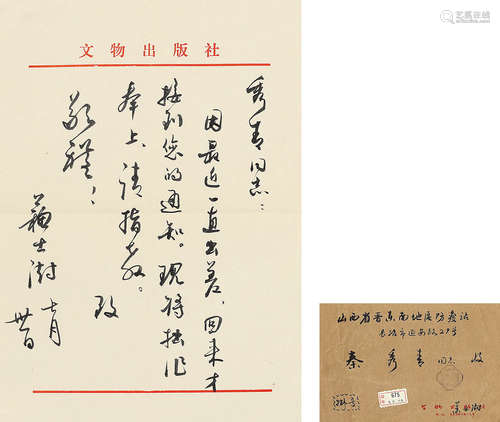 艺狐在线
文物出版社
秀青同志：
因最近一直出差，回来才
接到您的通知。现将拙作
奉上，请指教。致
敬礼！
苏士澍
七月
卅日
山西省晋东南地区防疫站
长治市延安路27号
秦秀青 同志 收
675